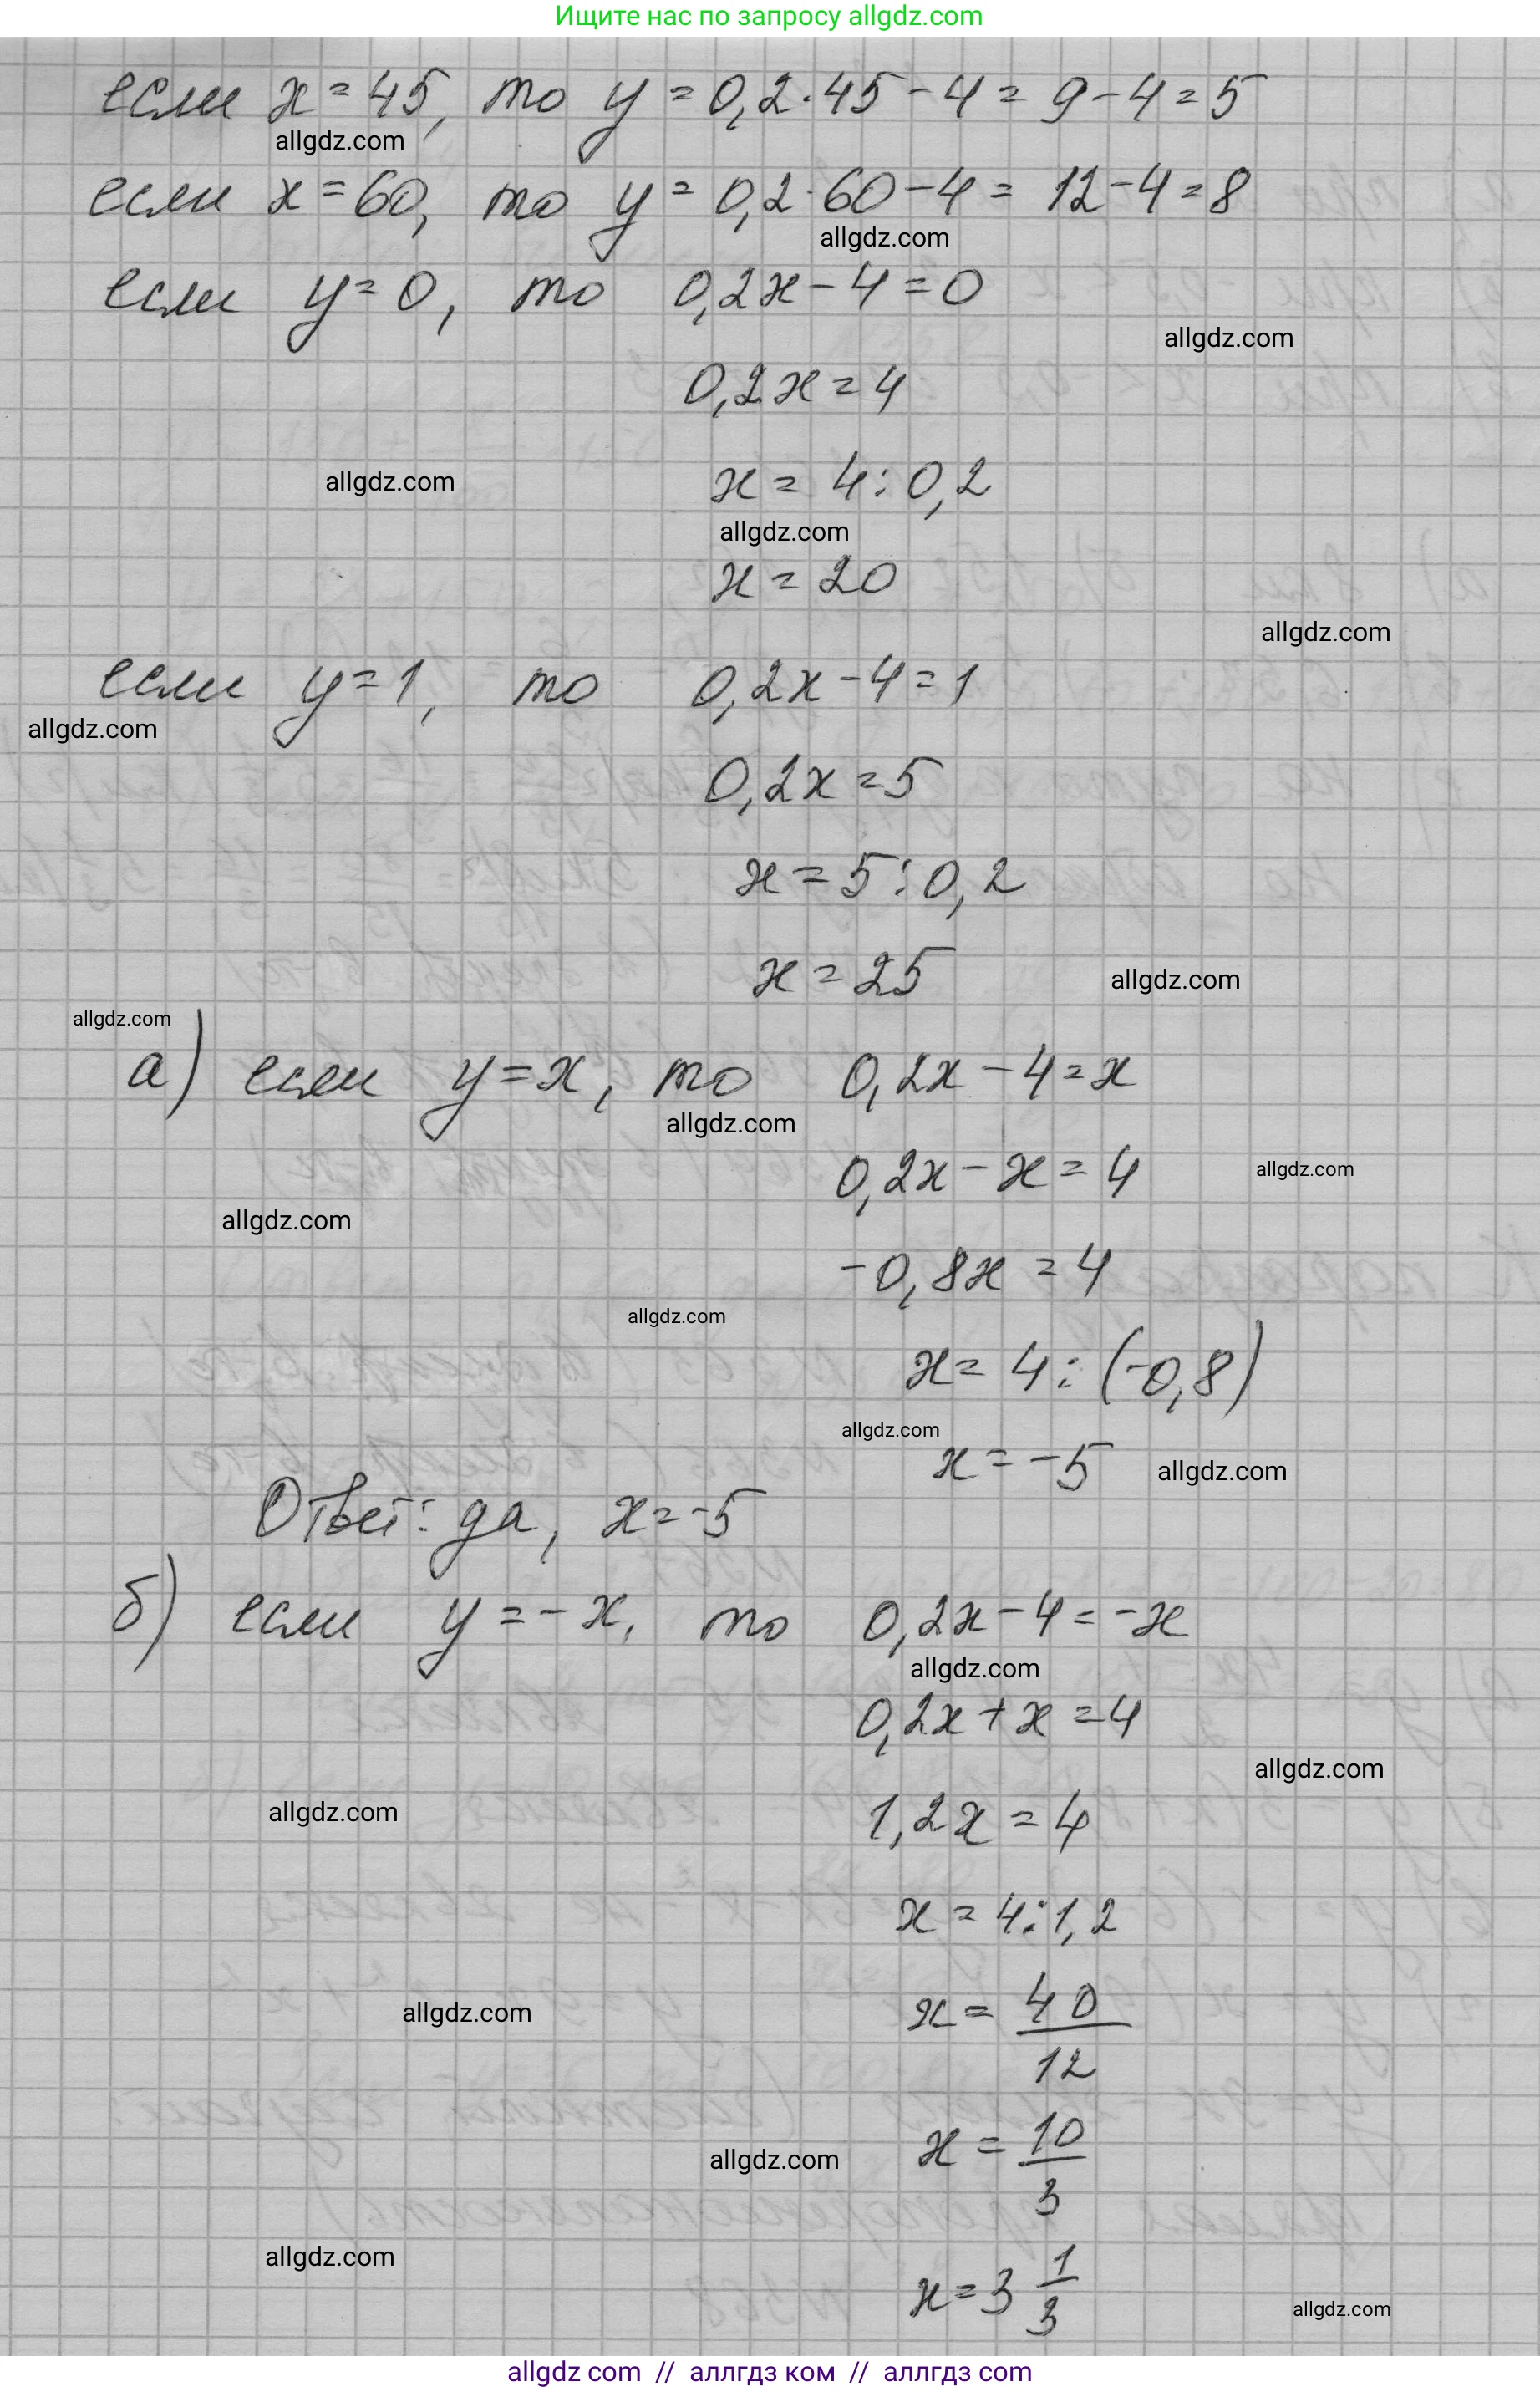 Ищите нас по запросу allgdz.com
если x = 45, то y = 0,2·45 - 4 = 9 - 4 = 5
allgdz.com
если x = 60, то y = 0,2·60 - 4 = 12 - 4 = 8
allgdz.com
если y = 0, то 0,2x - 4 = 0
allgdz.com
0,2x = 4
allgdz.com x = 4 : 0,2
allgdz.com
x = 20
allgdz.com
если y = 1, то 0,2x - 4 = 1
allgdz.com
0,2x = 5
x = 5 : 0,2
x = 25 allgdz.com
allgdz.com
а) если y = x, то 0,2x - 4 = x
allgdz.com
0,2x - x = 4 allgdz.com
allgdz.com
-0,8x = 4
allgdz.com
x = 4 : (-0,8)
allgdz.com
x = -5 allgdz.com
Ответ: да, x = -5
б) если y = -x, то 0,2x - 4 = -x
allgdz.com
0,2x + x = 4
allgdz.com
allgdz.com 1,2x = 4
x = 4 : 1,2
allgdz.com x = 40/12
allgdz.com x = 10/3
allgdz.com
x = 3 1/3 allgdz.com
allgdz com // аллгдз ком // аллгдз com